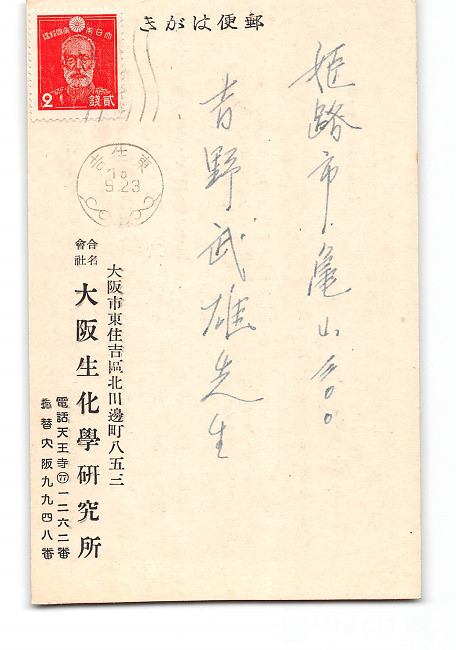 郵便はがき
大日本帝國郵便
2 錢貳
東住吉
18
9.23
姫路市亀山
吉野武雄先生
大阪市東住吉區北田邊町八五三
合名會社
大阪生化學研究所
電話天王寺(77)一二六二番
振替大阪九九四八番